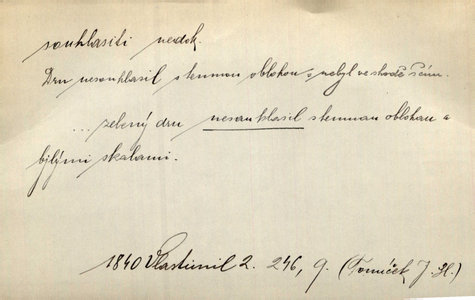 souhlasiti nedok.
Drn nesouhlasil s temnou oblohou, nebyl ve shodě s ním.
... zelený drn nesouhlasil s temnou oblohou a
bjlými skalami.
1840 Vlastimil 2. 246, 9. (Tomíček J. Sl.)